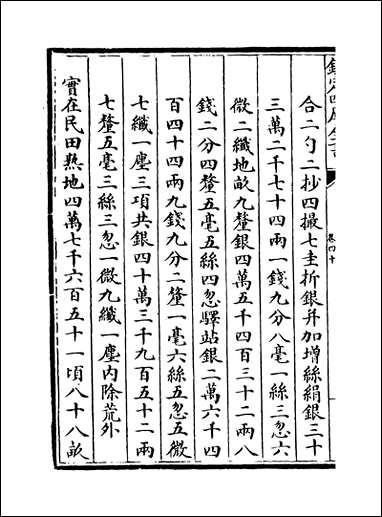 欽定四庫全書
卷四十
合二勺二抄四撮七圭折銀并加增絲絹銀三十
三萬二千七十四兩一錢九分八毫一絲三忽六
微二纖地畝九釐銀四萬五千四百三十二兩八
錢二分四釐五毫五絲四忽驛站銀二萬六千四
百四十四兩九錢九分二釐一毫六絲五忽五微
七纖一塵三項共銀四十萬三千九百五十二兩
七釐五毫三絲三忽一微九纖一塵內除荒外
實在民田熟地四萬七千六百五十一頃八十八畝